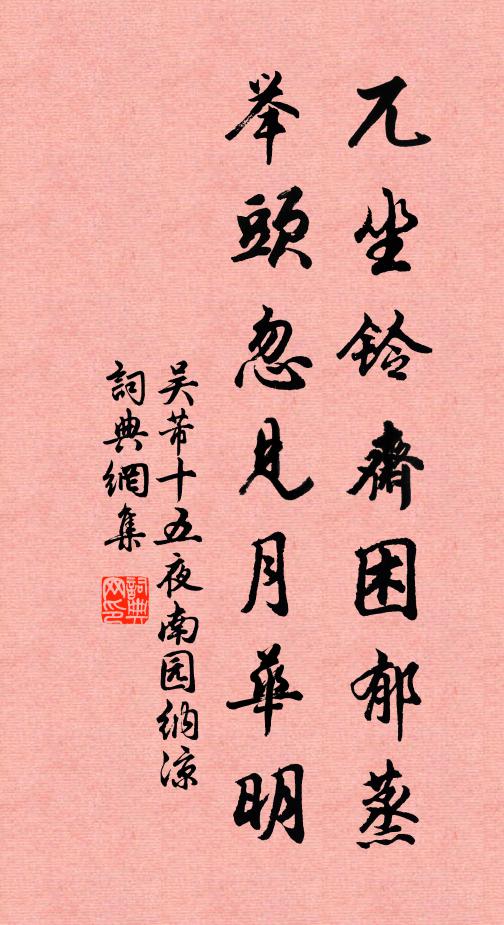 兀坐铃齋困郁蒸
举頭忽見月華明
吴芾十五夜南园纳凉
詞典網集
詞典网印